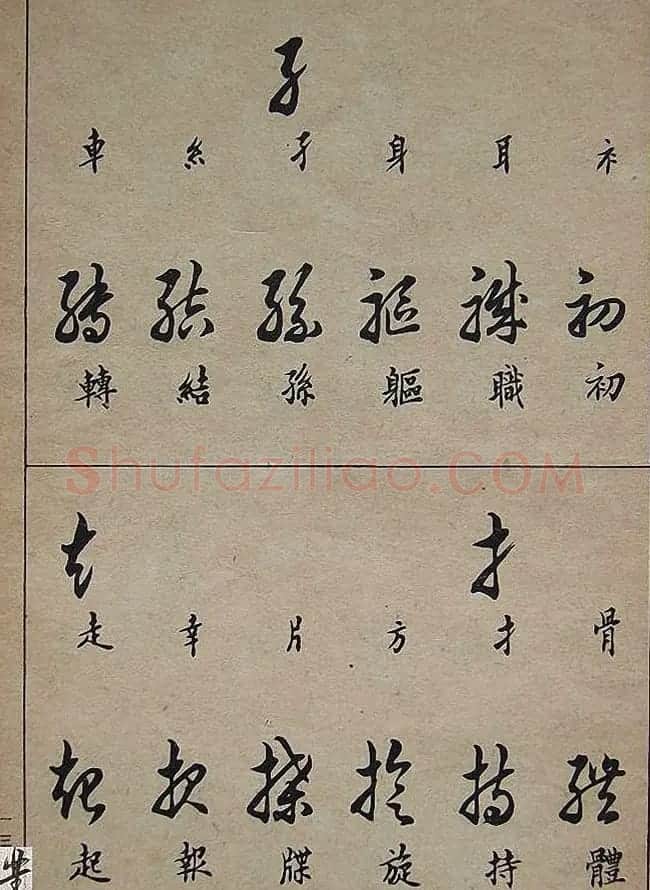 子
礻 耳 身 子 糸 車
初 職 軀 孫 結 轉
初 職 軀 孫 結 轉
Shufaziliao.COM
才 走
骨 才 方 片 幸 走
體 持 旋 牒 報 起
體 持 旋 牒 報 起